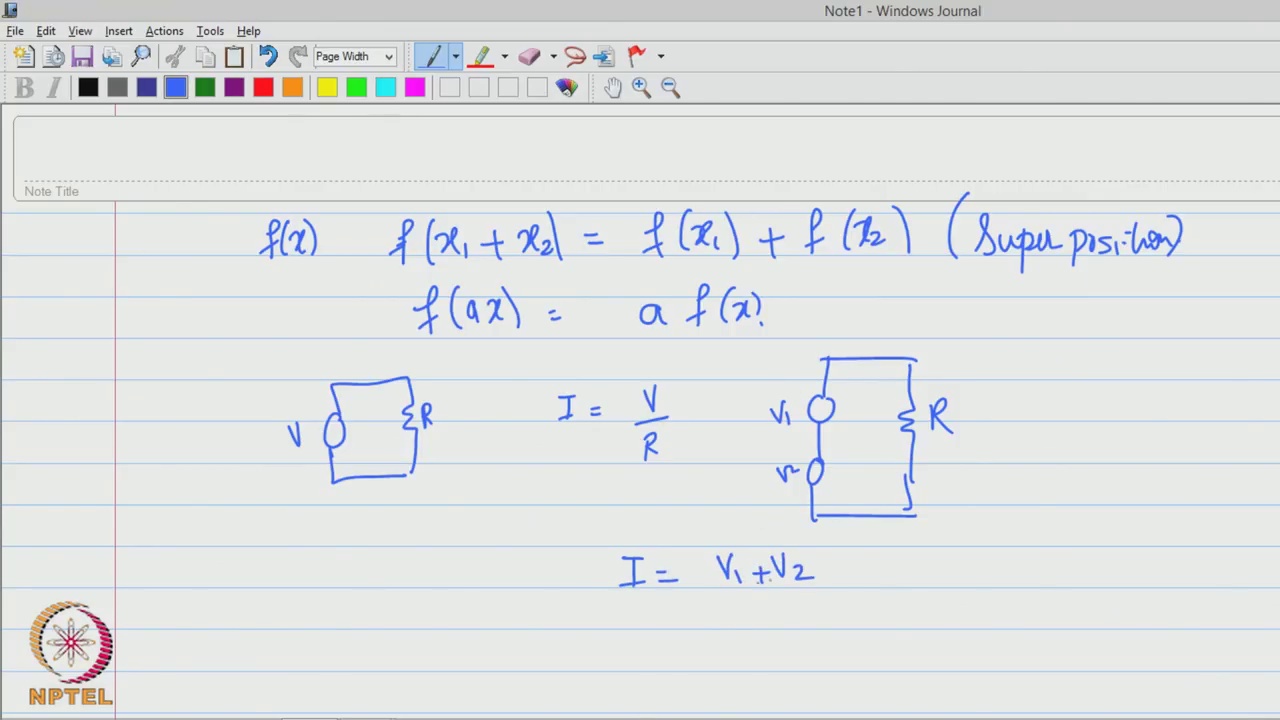 Note1 - Windows Journal
File Edit View Insert Actions Tools Help
Page Width
B I
Note Title
f(x) f(x1 + x2) = f(x1) + f(x2) (Superposition)
f(ax) = a f(x)
V R I = V/R V1 R
V2
I = V1+V2
NPTEL